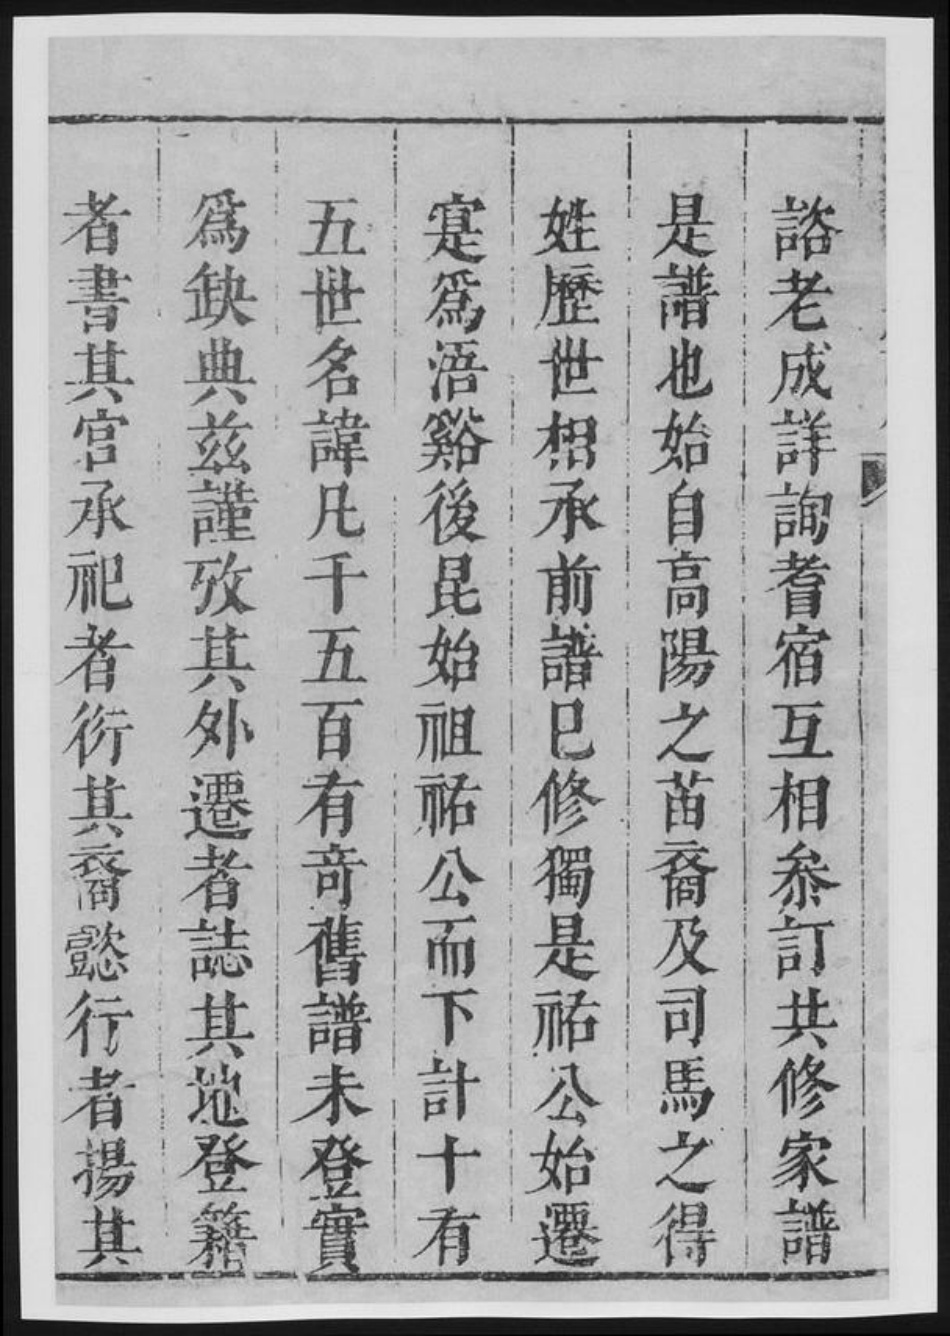 諮老成詳詢耆宿互相叅訂共修家譜
是譜也始自高陽之苗裔及司馬之得
姓歷世相承前譜巳修獨是祐公始遷
寔爲浯谿後昆始祖祐公而下計十有
五世名諱凡千五百有奇舊譜未登實
爲缺典兹謹攷其外遷者誌其地登籍
者書其官承祀者衍其裔懿行者揚其